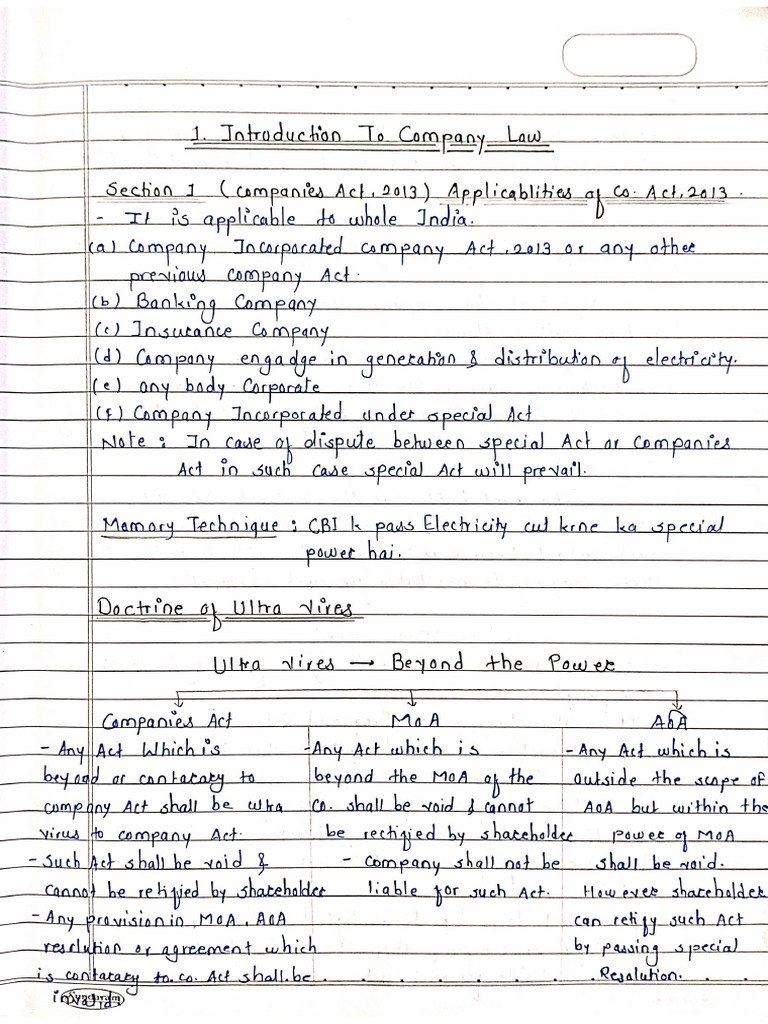 1. Introduction To Company Law
Section 1 (companies Act, 2013) Applicablities of Co. Act, 2013.
- It is applicable to whole India.
(a) Company Incorporated company Act, 2013 or any other
previous company Act.
(b) Banking Company
(c) Insurance Company
(d) Company engadge in generation & distribution of electricity.
(e) any body Corporate
(f) Company Incorporated under special Act
Note : In case of dispute between special Act or Companies
Act in such case special Act will prevail.
Mamory Technique : CBI k pass Electricity cut krne ka special
power hai.
Doctrine of Ultra Vires
Ultra Vires → Beyond the Power
Companies Act
- Any Act Which is
beyond or contatary to
company Act shall be ultra
virus to company Act.
- Such Act shall be void &
cannot be retified by shareholder
- Any provision in MOA, AOA
reselution or agreement which
is contatary to co. Act shall be
invalid.
MoA
- Any Act which is
beyond the MoA of the
Co. shall be void & cannot
be rectified by shareholder
- Company shall not be
liable for such Act.
AoA
- Any Act which is
outside the scope of
AoA but within the
power of MoA
shall be void.
However shareholder
can retify such Act
by passing special
Resolution.
Sundaram